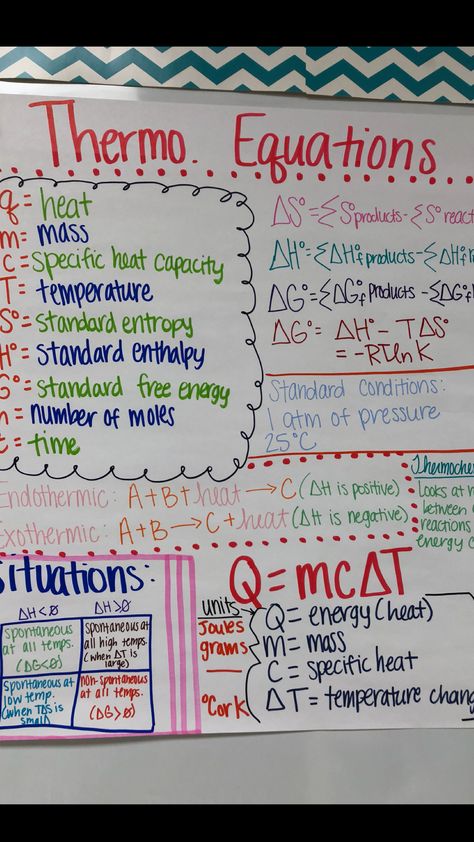 Thermo. Equations
q = heat
m = mass
c = specific heat capacity
T = temperature
S° = standard entropy
H° = standard enthalpy
G° = standard free energy
n = number of moles
t = time
ΔS° = ΣS° products - ΣS° react
ΔH° = ΣΔH°f products - ΣΔH°f
ΔG° = ΣΔG°f products - ΣΔG°f
ΔG° = ΔH° - TΔS°
= -RTlnK
Standard Conditions:
1 atm of pressure
25°C
Endothermic: A+B+heat → C (ΔH is positive)
Exothermic: A+B → C+heat (ΔH is negative)
Thermoche
Looks at
between
reactions
energy
Situations:
ΔH<0 ΔH>0
spontaneous
at all temps.
(ΔG<0)
spontaneous at
all high temps.
(when ΔT is
large)
spontaneous at
low temp.
(when TΔS is
small)
non-spontaneous
at all temps.
(ΔG>0)
Q=mcΔT
units
Joules
grams
—
°C or K
Q = energy (heat)
M = mass
C = specific heat
ΔT = temperature chang